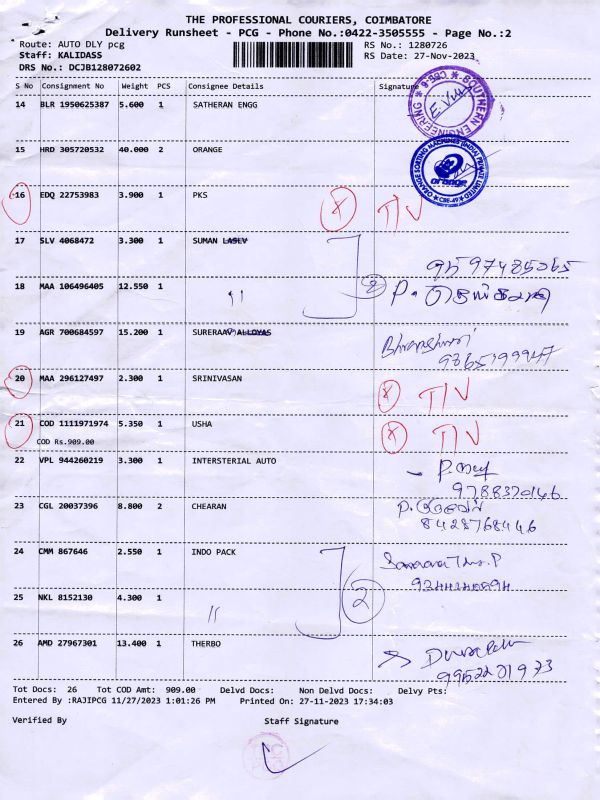 THE PROFESSIONAL COURIERS, COIMBATORE
Delivery Runsheet - PCG - Phone No.:0422-3505555 - Page No.:2
Route: AUTO DLY pcg RS No.: 1280726
Staff: KALIDASS RS Date: 27-Nov-2023
DRS No.: DCJB128072602
S No Consignment No Weight PCS Consignee Details Signature
14 BLR 1950625387 5.600 1 SATHERAN ENGG
SOUTHERN ENGINEERING ★ CBE-6 ★
15 HRD 305720532 40.000 2 ORANGE
ORANGE SORTING MACHINES (INDIA) PRIVATE LIMITED ★ CBE-49 ★
orange
16 EDQ 22753983 3.900 1 PKS X T/V
17 SLV 4068472 3.300 1 SUMAN LASEV
9597485065
18 MAA 106496405 12.550 1 " 2 P.
19 AGR 700684597 15.200 1 SURERAAV ALLOYAS
20 MAA 296127497 2.300 1 SRINIVASAN X T/V
21 COD 1111971974 5.350 1 USHA X T/V
COD Rs.909.00
22 VPL 944260219 3.300 1 INTERSTERIAL AUTO
9788370146
23 CGL 20037396 8.800 2 CHEARAN P.
8428768446
24 CMM 867646 2.550 1 INDO PACK
25 NKL 8152130 4.300 1 " 2
26 AMD 27967301 13.400 1 THERBO
9952201973
Tot Docs: 26 Tot COD Amt: 909.00 Delvd Docs: Non Delvd Docs: Delvy Pts:
Entered By :RAJIPCG 11/27/2023 1:01:26 PM Printed On: 27-11-2023 17:34:03
Verified By Staff Signature